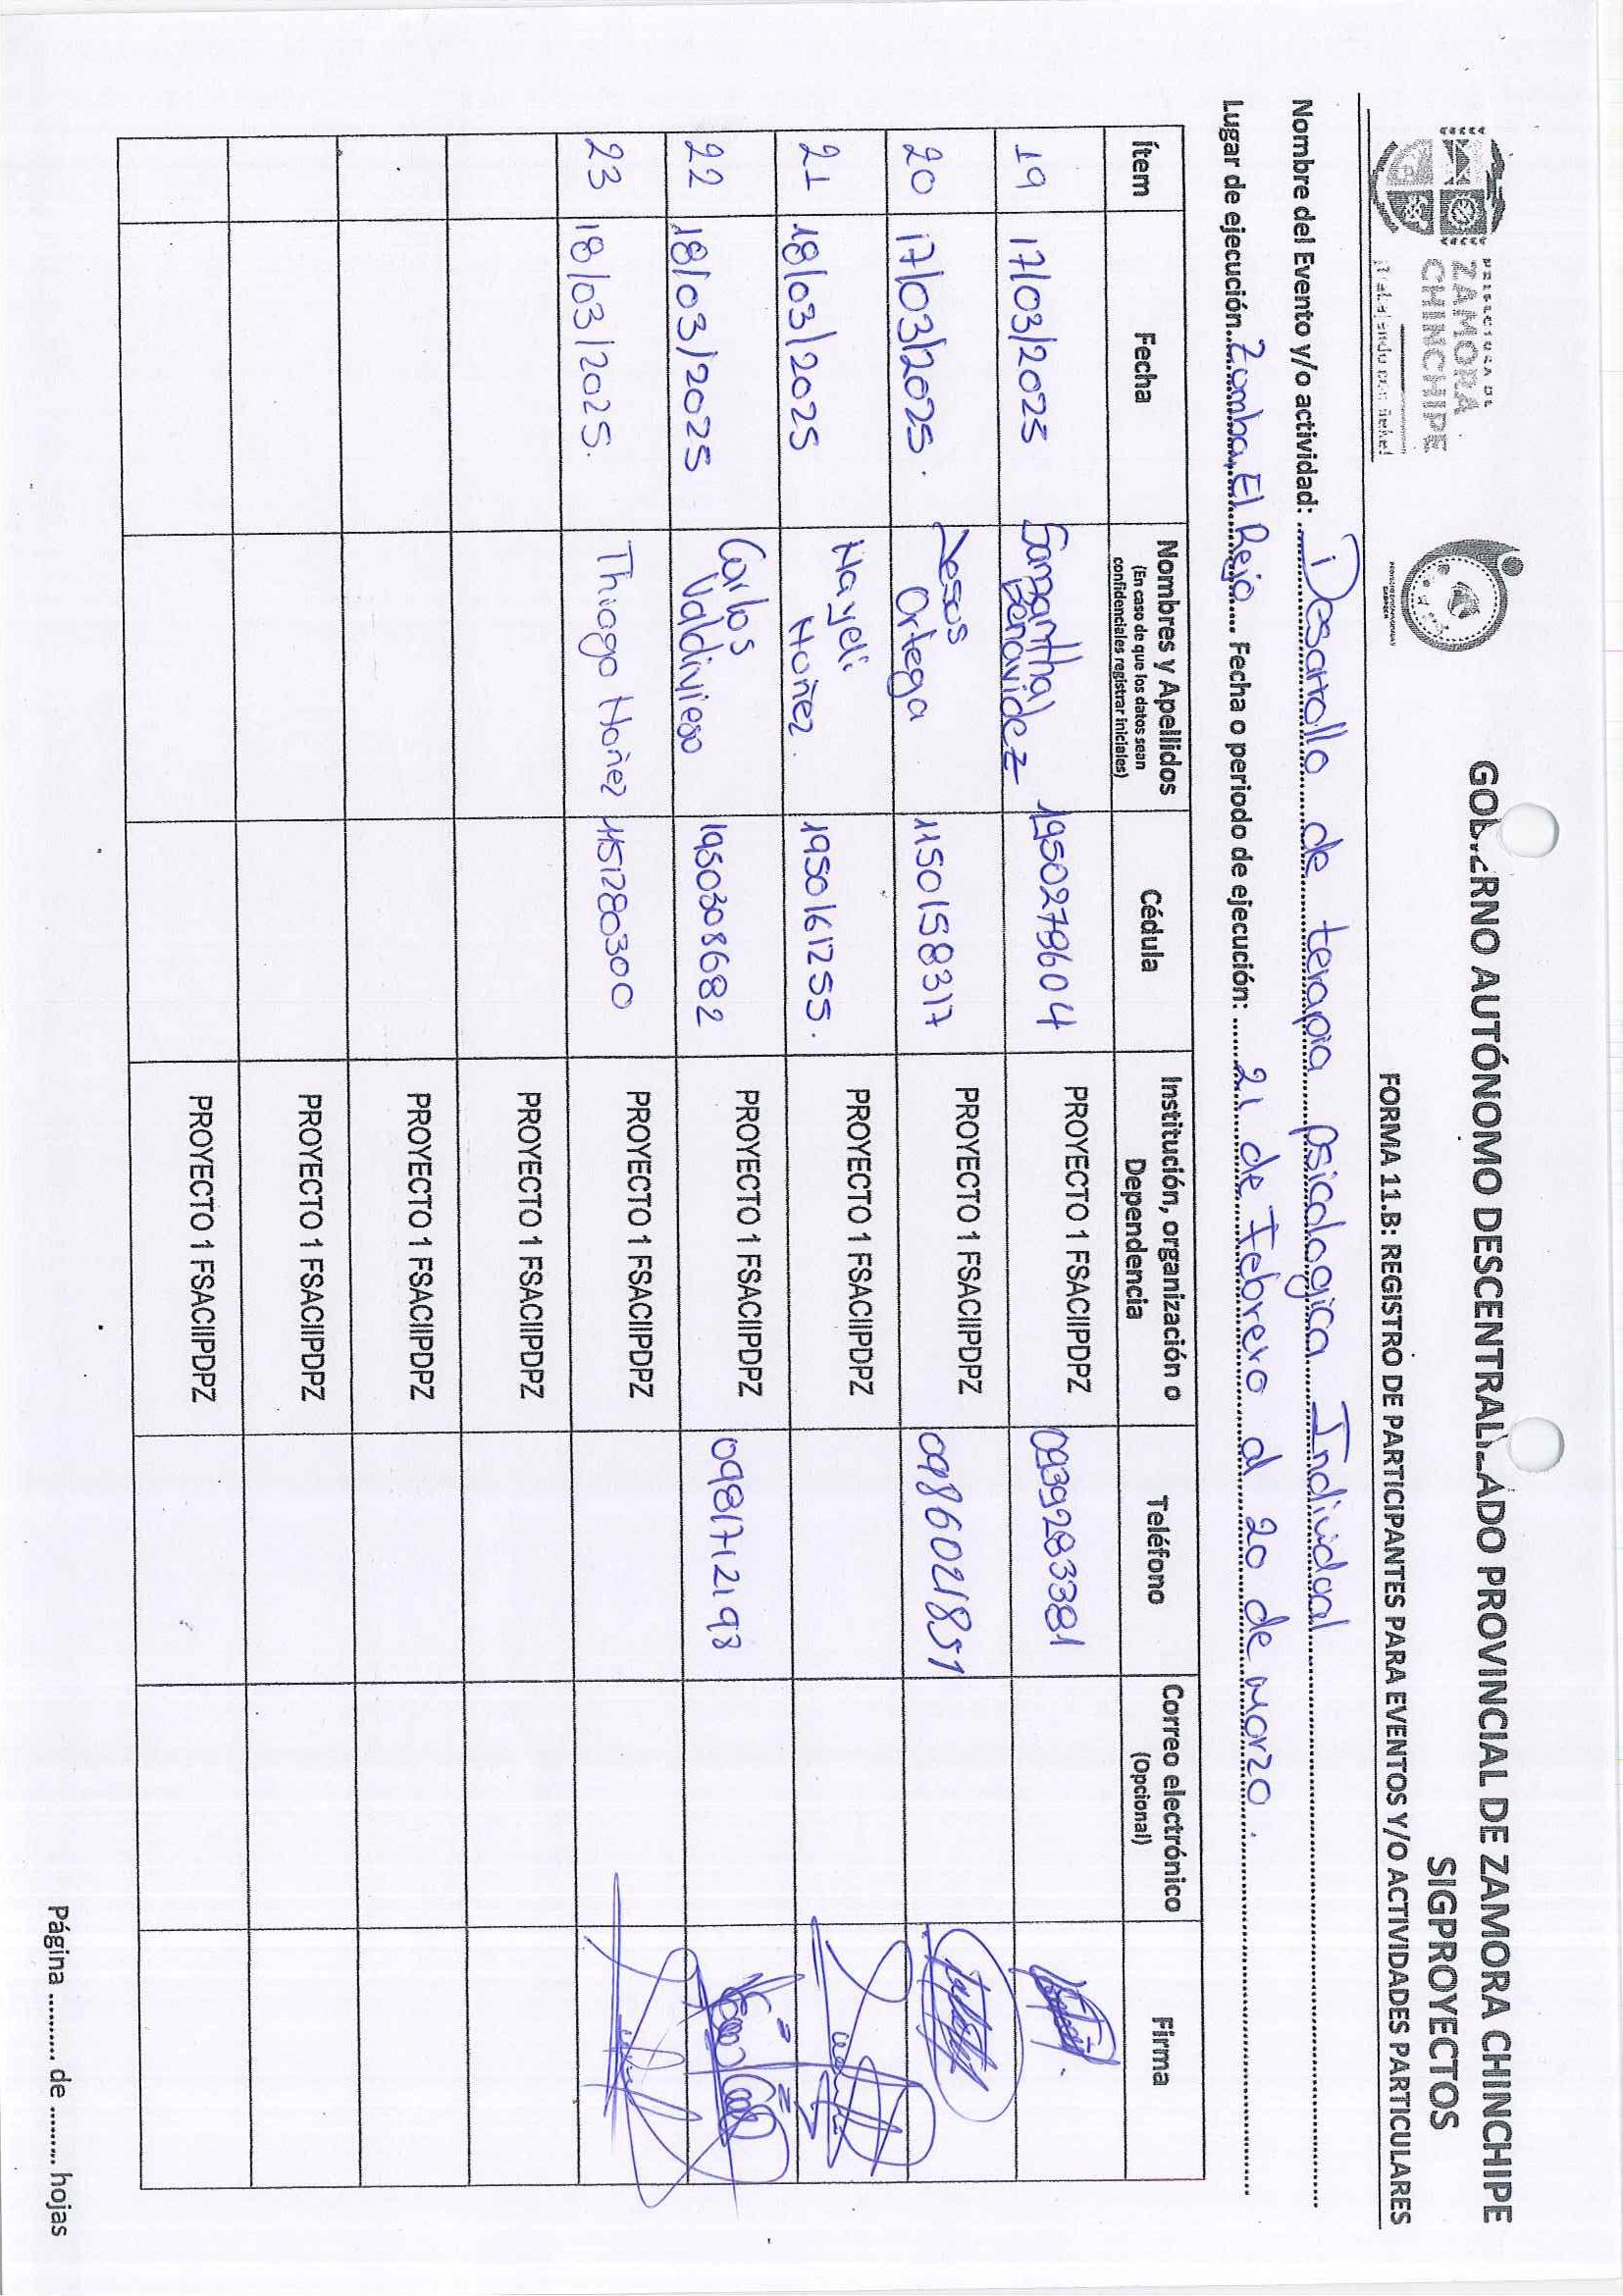 PREFECTURA DE
ZAMORA
CHINCHIPE
GOBIERNO AUTÓNOMO DESCENTRALIZADO PROVINCIAL DE ZAMORA CHINCHIPE
SIGPROYECTOS
FORMA 11.B: REGISTRO DE PARTICIPANTES PARA EVENTOS Y/O ACTIVIDADES PARTICULARES
Nombre del Evento y/o actividad: Desarrollo de terapia psicologica Individual
Lugar de ejecución Zumba, El Rejo Fecha o periodo de ejecución: 21 de Febrero al 20 de marzo.
Ítem Fecha Nombres y Apellidos (En caso de que los datos sean confidenciales registrar iniciales) Cédula Institución, organización o Dependencia Teléfono Correo electrónico (Opcional) Firma
19 17/03/2025 Samantha Benavidez 1950279604 PROYECTO 1 FSACIIPDPZ 0939283381
20 17/03/2025. Jesus Ortega 1150158317 PROYECTO 1 FSACIIPDPZ 0986021851
21 18/03/2025 Nayeli Noñez. 1950161255. PROYECTO 1 FSACIIPDPZ
22 18/03/2025 Carlos Valdivieso 1950308682 PROYECTO 1 FSACIIPDPZ 0981712193
23 18/03/2025. Thiago Noñez 1151280300 PROYECTO 1 FSACIIPDPZ
PROYECTO 1 FSACIIPDPZ
PROYECTO 1 FSACIIPDPZ
PROYECTO 1 FSACIIPDPZ
PROYECTO 1 FSACIIPDPZ
Página ......... de ........ hojas